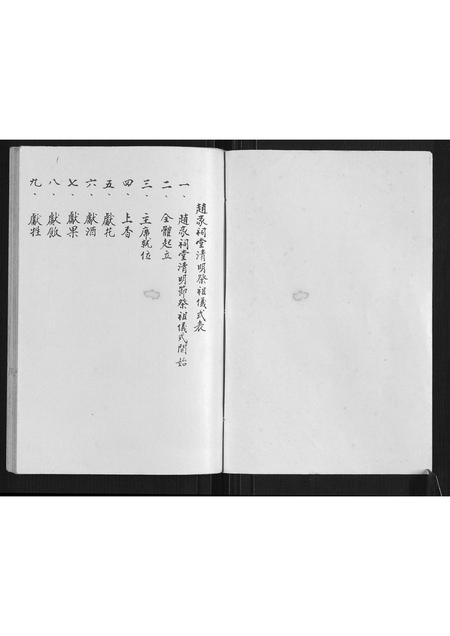 趙家祠堂清明祭祖儀式表
一、趙家祠堂清明節祭祖儀式開始
二、全體起立
三、主席就位
四、上香
五、獻花
六、獻酒
七、獻果
八、獻飯
九、獻牲